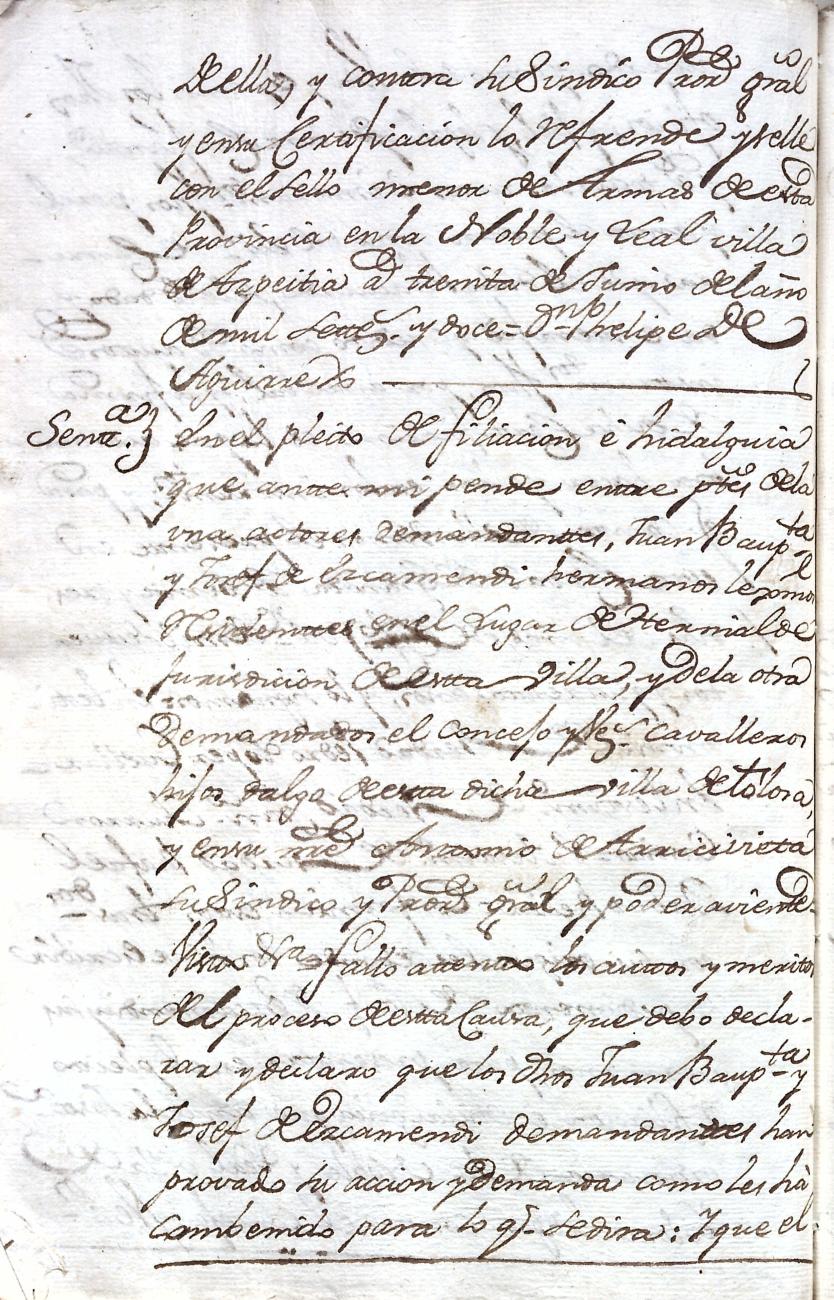 de ella, y contra su Sindico Pror. gral
y en su Certificacion lo refrende y selle
con el sello menor de Armas de esta
Provincia en la Noble y Leal villa
de Azpeitia â treinta de Junio del año
de mil settez. y doce = Dn. Phelipe de
Aguirre
Sentt.a En el pleito de filiacion, e hidalguia
que antte mi pende entre ptes. de la
vna, actores demandanttes, Juan Baup.ta
y Josef de Ercamendi hermanos lexmos
residenttes en el Lugar de Hernialde
Jurisdicion de estta Villa, y de la otra
demandados el Concejo y Vez.s cavalleros
hijos dalgo de esta dicha villa de tolosa,
y en su nre. Antonio de Arricivieta
su Sindico y Pror. gral y poder aviente.
Vistos Vra. fallo attento los auttos y meritos
del proceso de estta Causa, que debo decla-
rar y declaro que los dhos Juan Baup.ta y
Josef de Ercamendi demandanttes han
provado su accion y demanda como les hà
combenido para lo q. se dira: Y que el